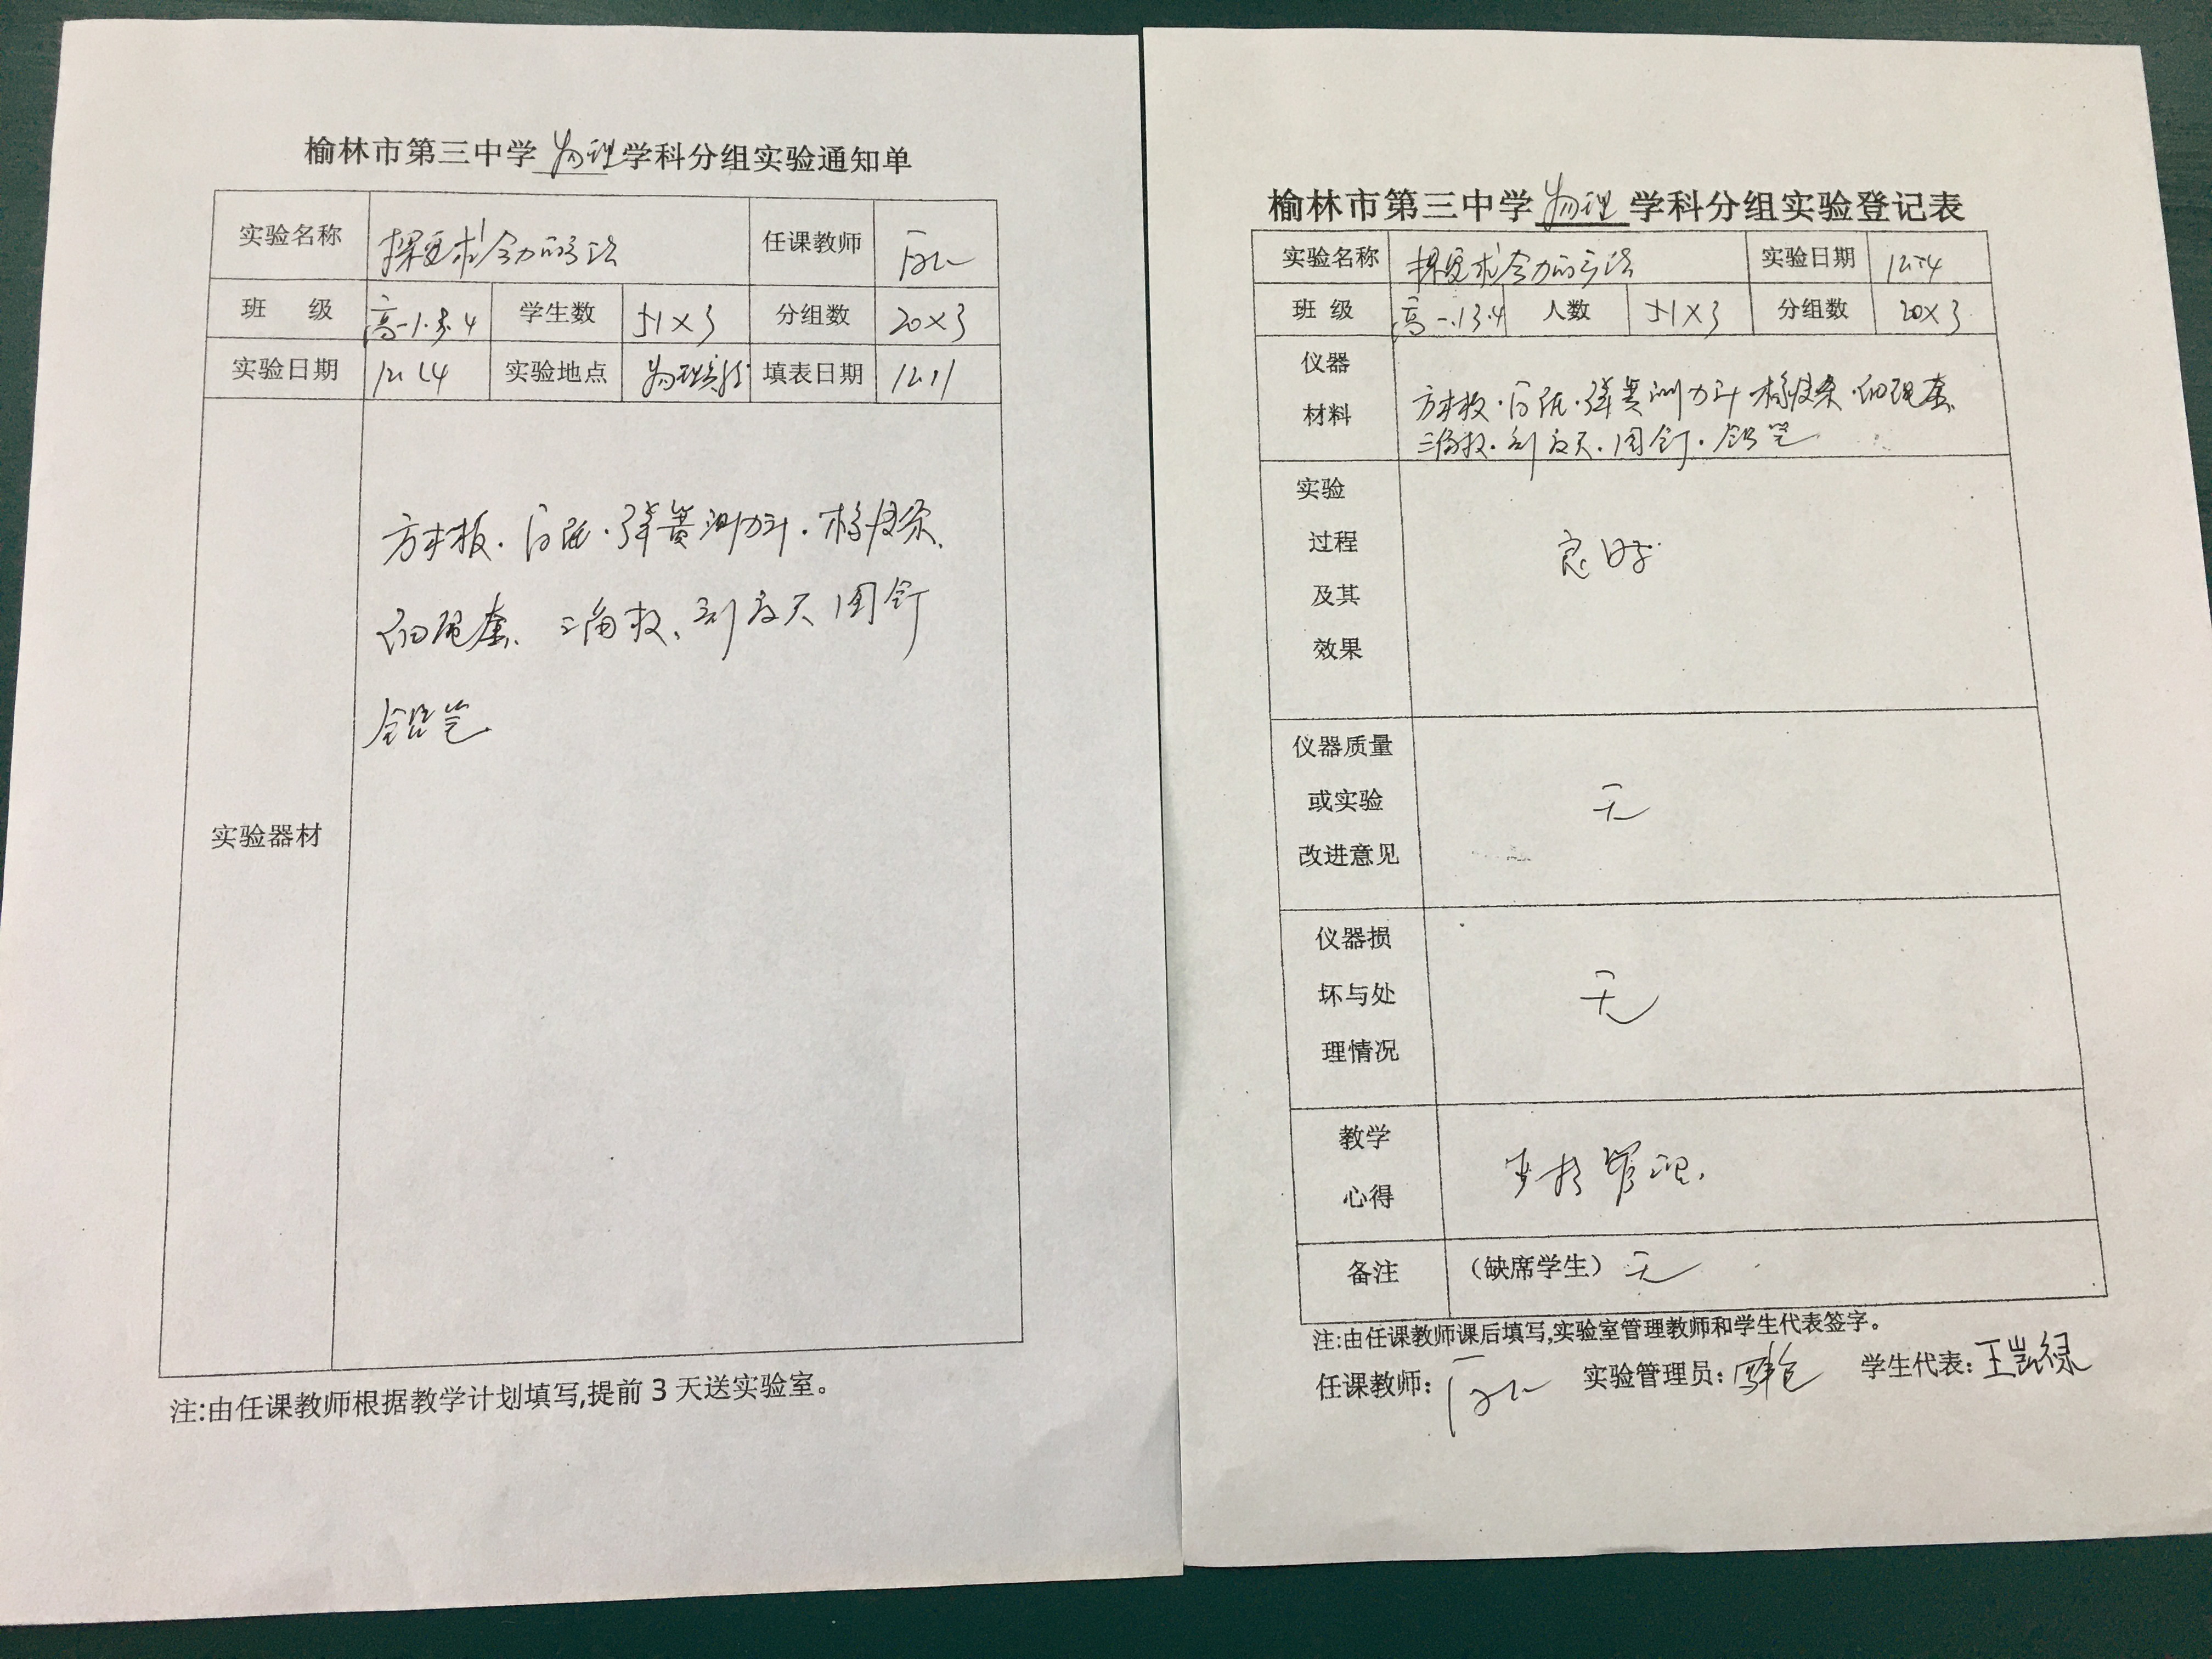 榆林市第三中学物理学科分组实验通知单
实验名称 探究求合力的方法 任课教师
班 级 高一1.3.4 学生数 51×3 分组数 20×3
实验日期 实验地点 物理实验 填表日期 12.11
实验器材
方木板.白纸.弹簧测力计.橡皮条.
细绳套、三角板、刻度尺 图钉
铅笔
注:由任课教师根据教学计划填写,提前3天送实验室。
榆林市第三中学物理学科分组实验登记表
实验名称 探究求合力的方法 实验日期
班 级 高一.1 3.4 人数 51×3 分组数 20×3
仪器
材料
方木板.白纸.弹簧测力计 橡皮条.细绳套
三角板.刻度尺.图钉.铅笔
实验
过程
及其
效果
良好
仪器质量
或实验
改进意见
无
仪器损
坏与处
理情况
无
教学
心得
管理.
备注 (缺席学生) 无
注:由任课教师课后填写,实验室管理教师和学生代表签字。
任课教师: 实验管理员: 学生代表:王凯禄